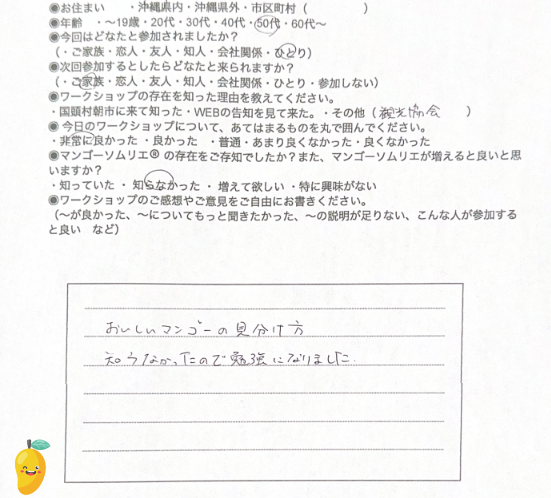 ◉お住まい ・沖縄県内・沖縄県外・市区町村（ ）
◉年齢 ・〜19歳・20代・30代・40代・50代・60代〜
◉今回はどなたと参加されましたか？
（・ご家族・恋人・友人・知人・会社関係・ひとり）
◉次回参加するとしたらどなたと来られますか？
（・ご家族・恋人・友人・知人・会社関係・ひとり・参加しない）
◉ワークショップの存在を知った理由を教えてください。
・国頭村朝市に来て知った・WEBの告知を見て来た。・その他（ 観光協会 ）
◉ 今日のワークショップについて、あてはまるものを丸で囲んでください。
・非常に良かった ・良かった ・普通・あまり良くなかった・良くなかった
◉マンゴーソムリエ® の存在をご存知でしたか？また、マンゴーソムリエが増えると良いと思
いますか？
・知っていた ・ 知らなかった ・ 増えて欲しい ・特に興味がない
◉ワークショップのご感想やご意見をご自由にお書きください。
（〜が良かった、〜についてもっと聞きたかった、〜の説明が足りない、こんな人が参加する
と良い など）
おいしいマンゴーの見分け方
知らなかったので勉強になりました.